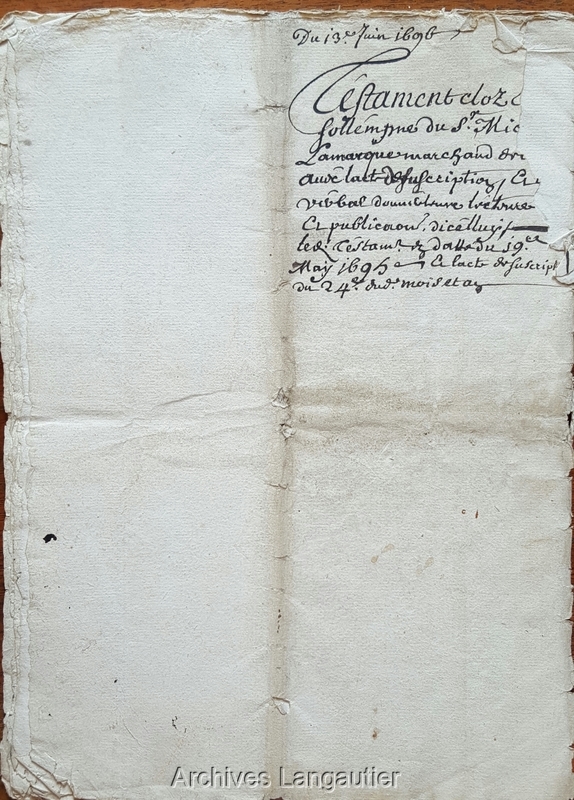 Du 13e Juin 1696
Testament cloz
sollempne du Sr. Mic
Lamarque marchand
avec lacte de suscription, Et
verbal douverture lecture
Et publicaon. dicelluy
led. Testamt. en datte du 19e
May 1695 Et lacte de suscript
du 24e dud. mois et an
Archives Langautier